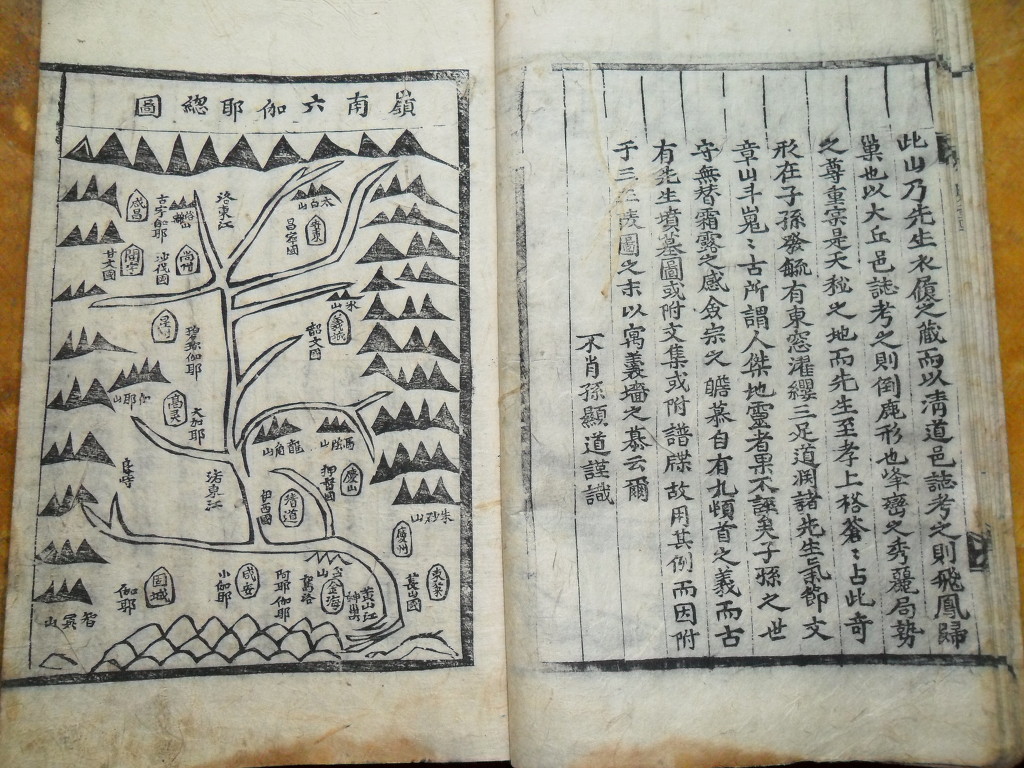 此山乃先生衣履之蔵而以清道邑誌考之則飛鳳歸
巢也以大丘邑誌考之則倒鹿形也峰巒之秀麗局勢
之尊重宲是天秘之地而先生至孝上格蒼〻占此奇
形在子孫發毓有東窓濯纓三足道渊諸先生氣節文
章山斗嵬〻古所謂人傑地靈者果不誣矣子孫之世
守無替霜露之感僉宗之瞻慕自有九頓首之義而古
有先生墳墓圖或附文集或附譜牒故用其例而因附
于三王陵圖之末以寓羹墻之慕云爾
不肖孫顯道謹識
嶺南六伽耶總圖
太白山
洛東江
咸昌
古宁伽耶
尚州
沙伐國
開宁
甘文國
召文國
義城
星州
碧珍伽耶
伽耶山
高灵
大加耶
龍角山
馬陰山
慶山
押督國
清道
伊西國
洛東江
朱砂山
慶州
東萊
萇山國
黃山江
金海
駕洛
阿耶伽耶
咸安
小伽耶
固城
伽耶
智異山